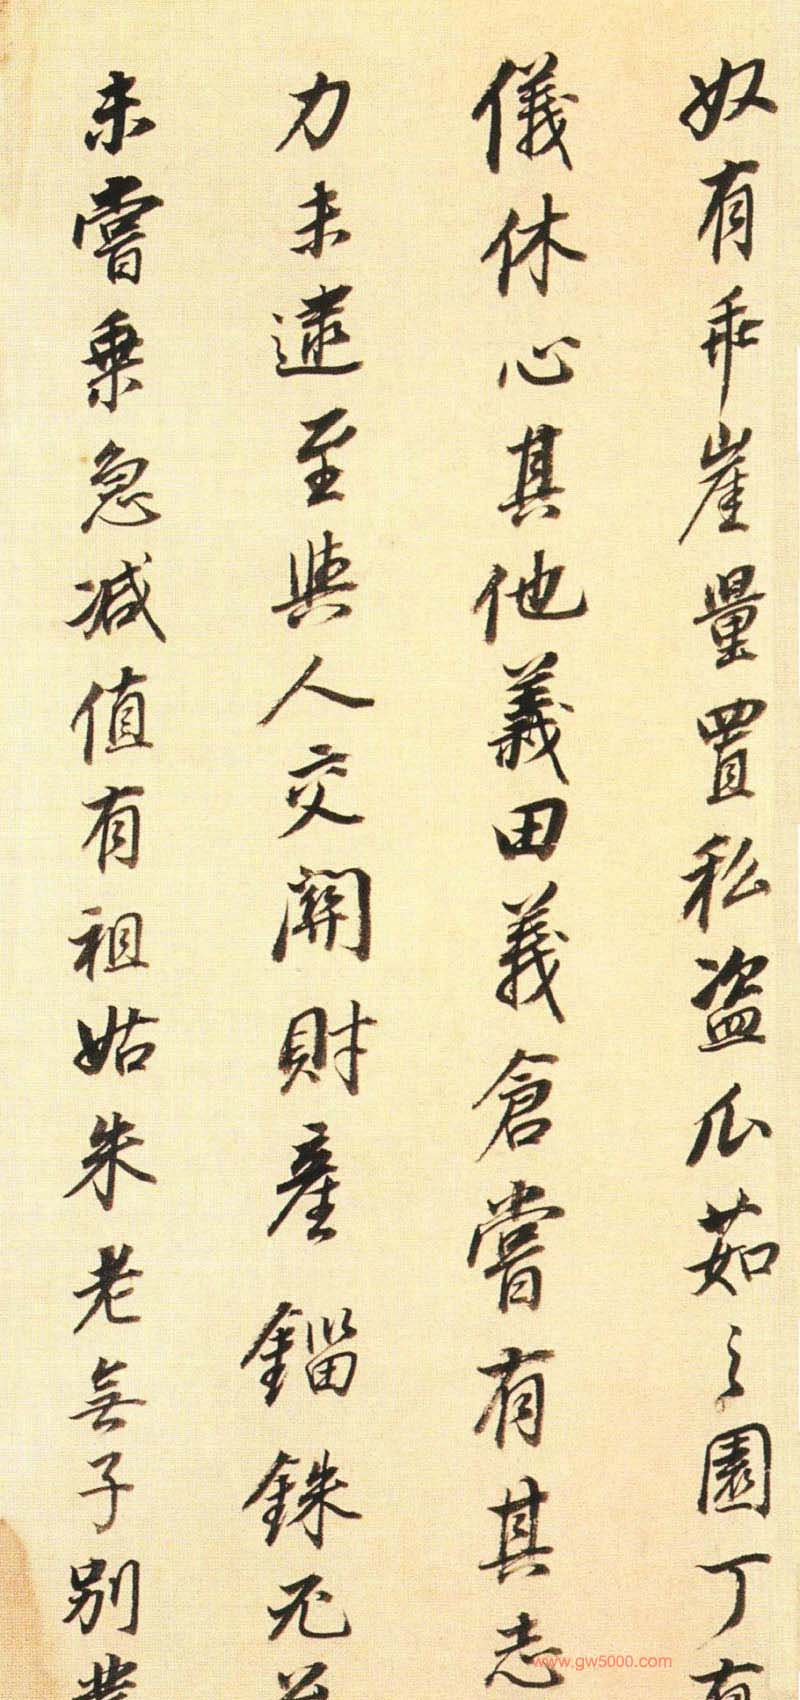 奴有乖崖量置私盗瓜茹之園丁有
儀休心其他義田義倉嘗有其志
力未逮至與人交關財產錙銖不苟
未嘗乘急減值有祖姑朱老無子別業
www.gw5000.com